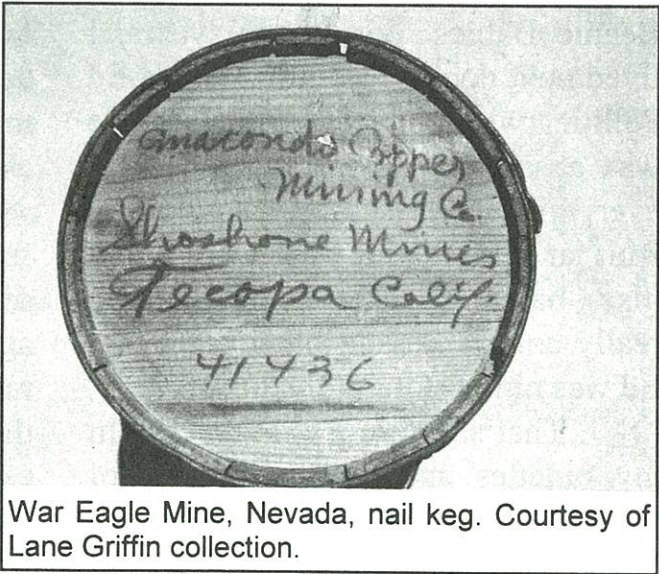 Anaconda Copper
Mining Co.
Shoshone Mines
Tecopa Calif.
41436
War Eagle Mine, Nevada, nail keg. Courtesy of
Lane Griffin collection.